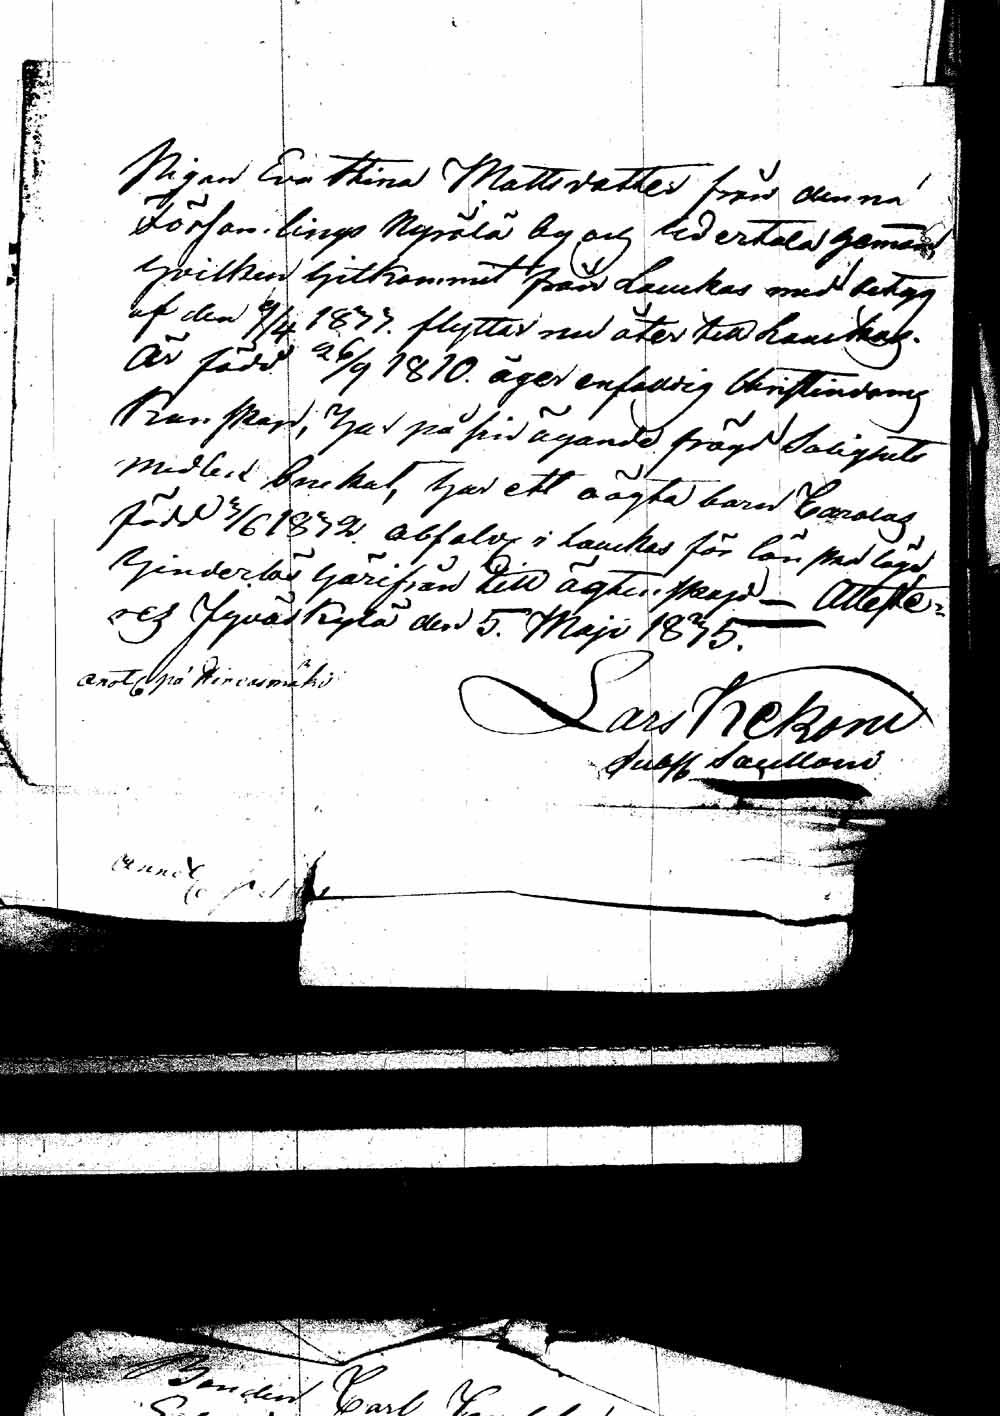 Pigan Eva Stina Mattsdotter från denna
Församlings Nyrölä by och Udertala hemman
hvilken hitkommit från Laukas med betyg
af den 9/4 1877. flyttar nu åter till Laukas.
Är född 26/9 1810. äger enfaldig Christendoms
Kunskap, har på sin ägande frägd Salighets
medlen brukat, har ett oägta barn Carolus
född 7/6 1872. absolv i Laukas för lönskaläge
hinderlös härifrån till ägtenskap — Atteste-
res Jyväskylä den 5. Maji 1875.
anotc på Hirvasmäki
Lars Kekoni
Annot
Bonden Carl